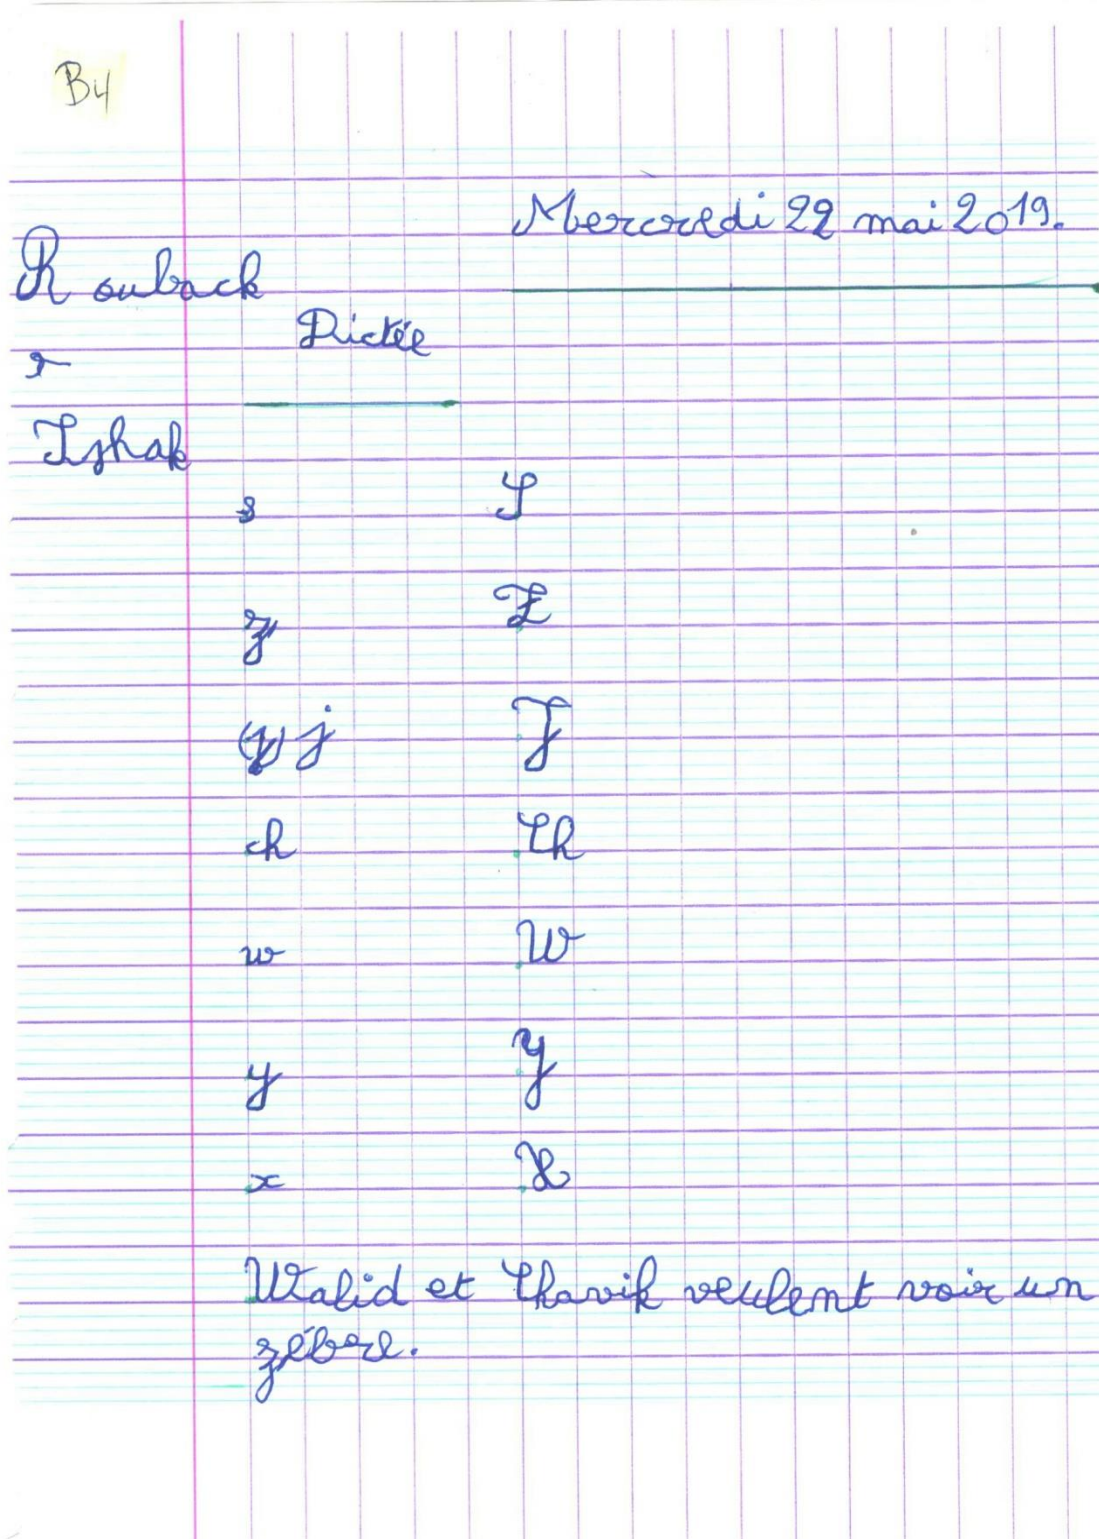 B4
Mercredi 22 mai 2019.
Rouback
Dictée
r
Ishak
s S
z Z
(y) j J
ch Ch
w W
y Y
x X
Walid et Chavik veulent voir un
zébre.